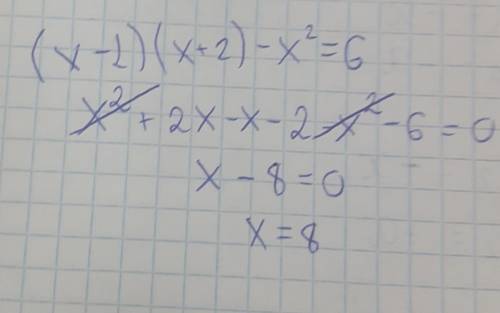 (x-1)(x+2)-x²=6
x²+2x-x-2-x²-6=0
x-8=0
x=8